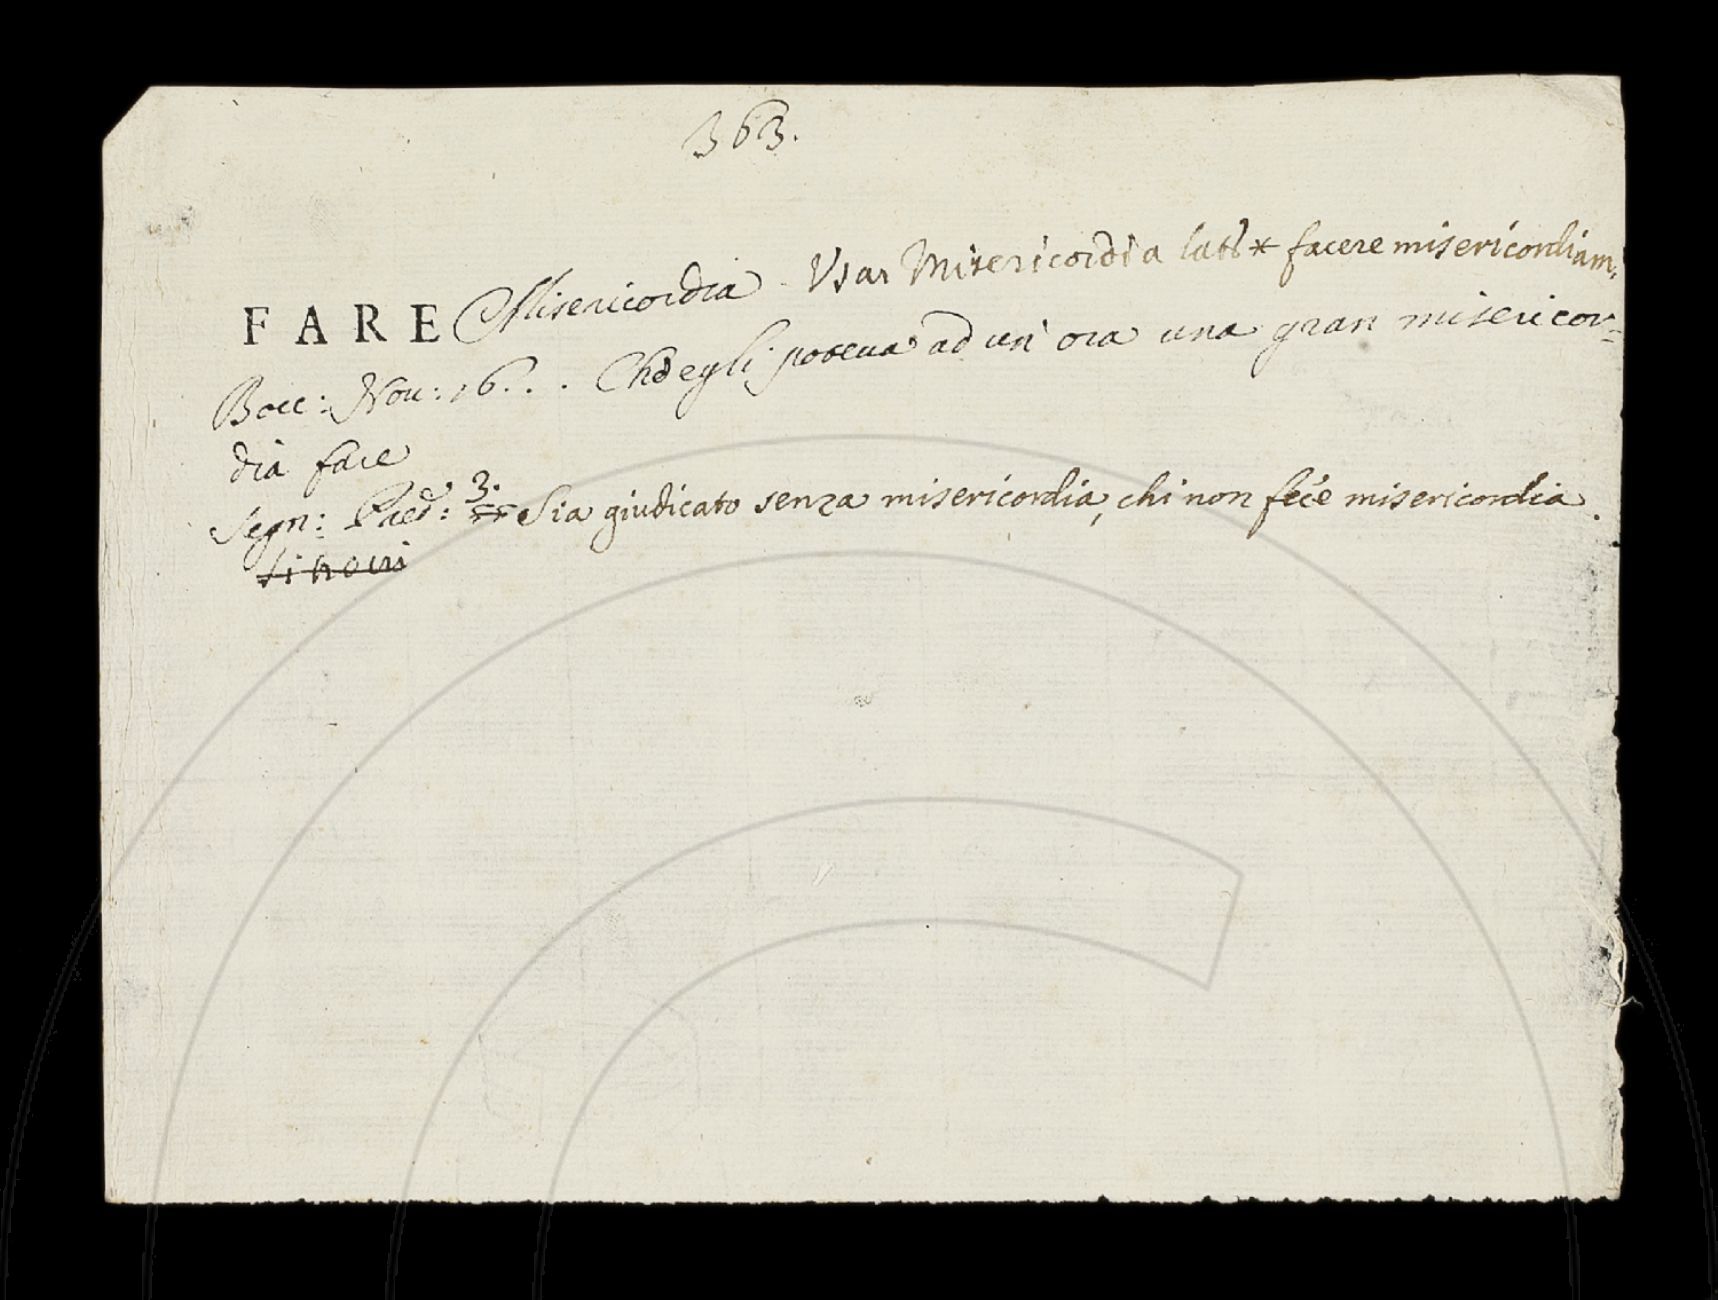 363.
FARE Misericordia Usar Misericordia lat. * facere misericordiam.
Bocc: Nov: 16. . . Ch'egli poteva ad un' ora una gran misericor-
dia fare
Segn: Pred: 3. Sia giudicato senza misericordia, chi non fece misericordia.